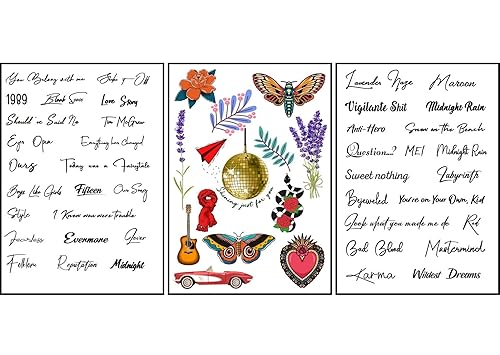 You Belong with me Shake it Off
1989 Blank Space Love Story
Should've Said No Tim McGraw
Eyes Open Everything Has Changed
Ours Today was a Fairytale
Boys Like Girls Fifteen Our Song
Style I Knew you were trouble
Fearless Evermore Lover
Folklore Reputation Midnight
Shining just for you
Lavender Haze Maroon
Vigilante Shit Midnight Rain
Anti-Hero Snow on the Beach
Question...? ME! Midnight Rain
Sweet nothing Labyrinth
Bejeweled You're on Your Own, Kid
Look what you made me do Red
Bad Blood Mastermind
Karma Wildest Dreams